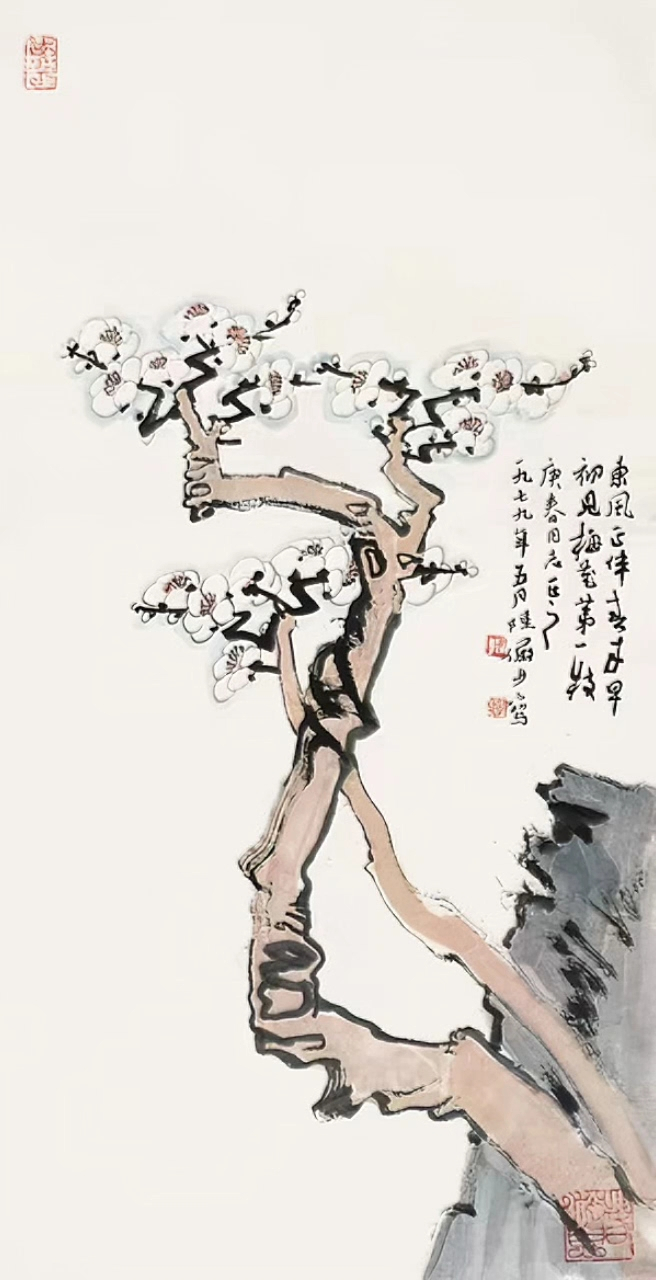 東風正伴春来早
初見梅花第一枝
庚春同志正之
一九七九年五月陸儼少写